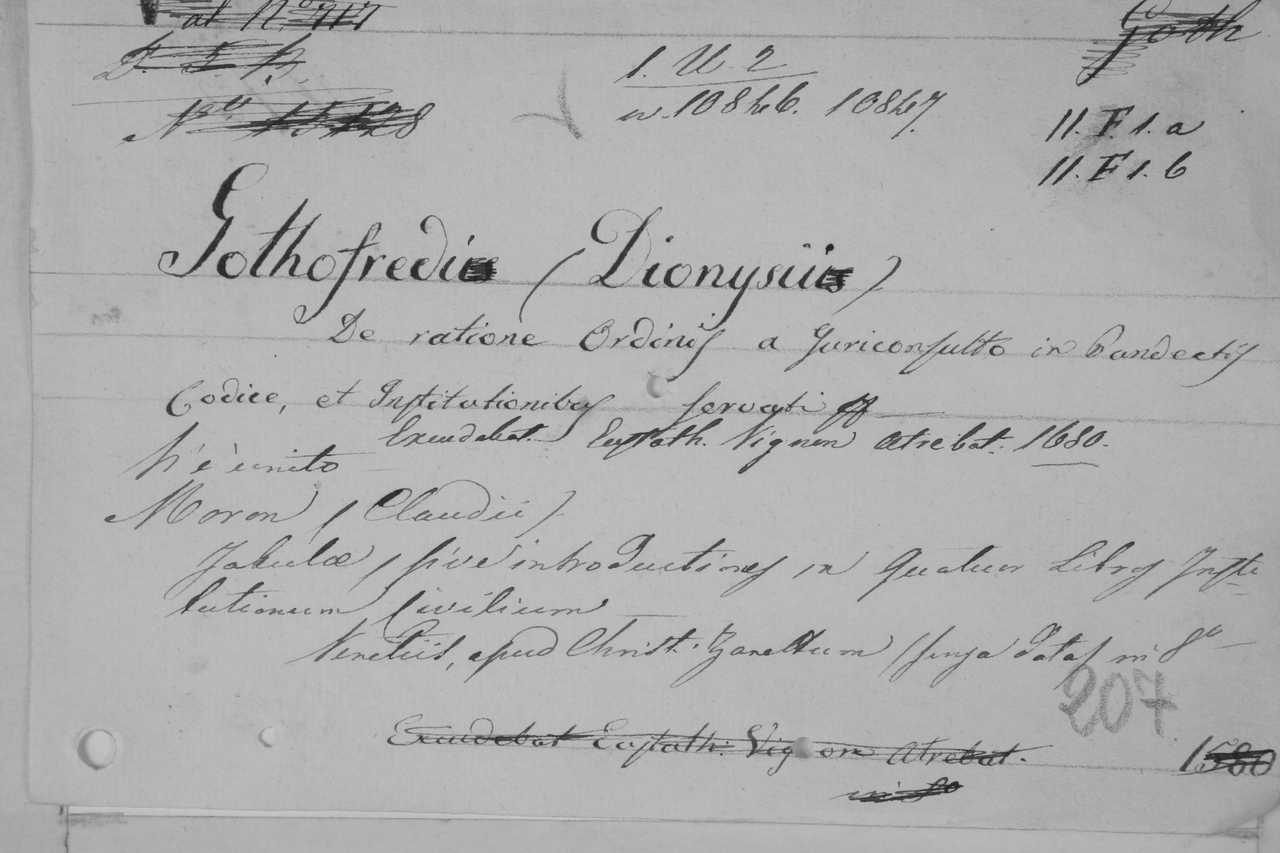 al No 717
Goth
D. S. B.
1. U. 2
No 15128
in. 10846. 10847.
11. F. 1. a
11. F. 1. b
Gothofredi (Dionysii)
De ratione Ordinis a Juriconsulto in Pandectis
Codice, et Institutionibus servati
Excudebat Eustath. Vignon Atrebat. 1680.
Si è unito
Moron (Claudii)
Tabulæ, sive introductiones in Quatuor Libros Insti-
tutionum Civilium
Venetiis, apud Christ. Zanettum (senza data) in 8o
207
Excudebat Eustath. Vignon Atrebat.
1580
in 8o